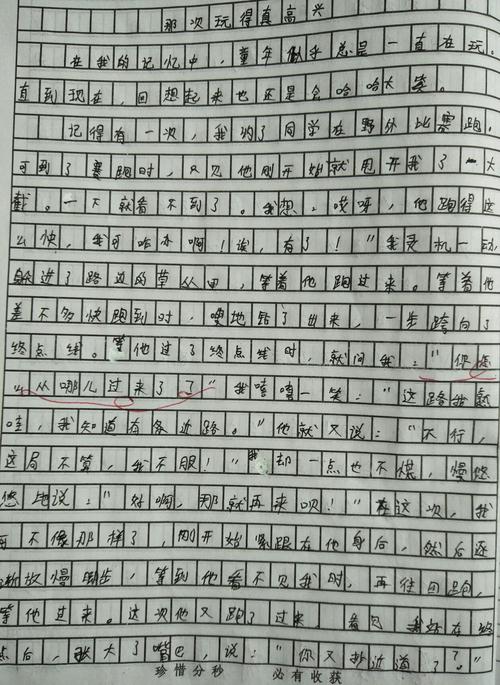 那次玩得真高兴
在我的记忆中，童年似乎总是一直在玩。
直到现在，回想起来也还是会哈哈大笑。
记得有一次，我约了同学在野外比赛跑，
可到了赛跑时，只见他刚开始就甩开我了一大
截。一下就看不到了。我想：哎呀，他跑得这
么快，我可咋办啊！诶，有了！"我灵机一动，
躲进了路边的草丛里，等着他跑过来。等着他
差不多快跑到时，嗖地钻了出来，一步跨向了
终点线。等他过了终点线时，就问我："你怎
么从哪儿过来了？"我嘻嘻一笑："这路我熟
哇，我知道有条近路。"他就又说："不行，
这局不算，我不服！"我却一点也不慌，慢悠
悠地说："好啊，那就再来呗！"在这次，我
不像那样了，刚开始紧跟在他身后，然后逐
渐放慢脚步，等到他看不见我时，再往回跑，
等他过来。这次他又跑了过来，看见我站在终
点后，张大了嘴巴，说："你又抄近道了？"
珍惜分秒 必有收获